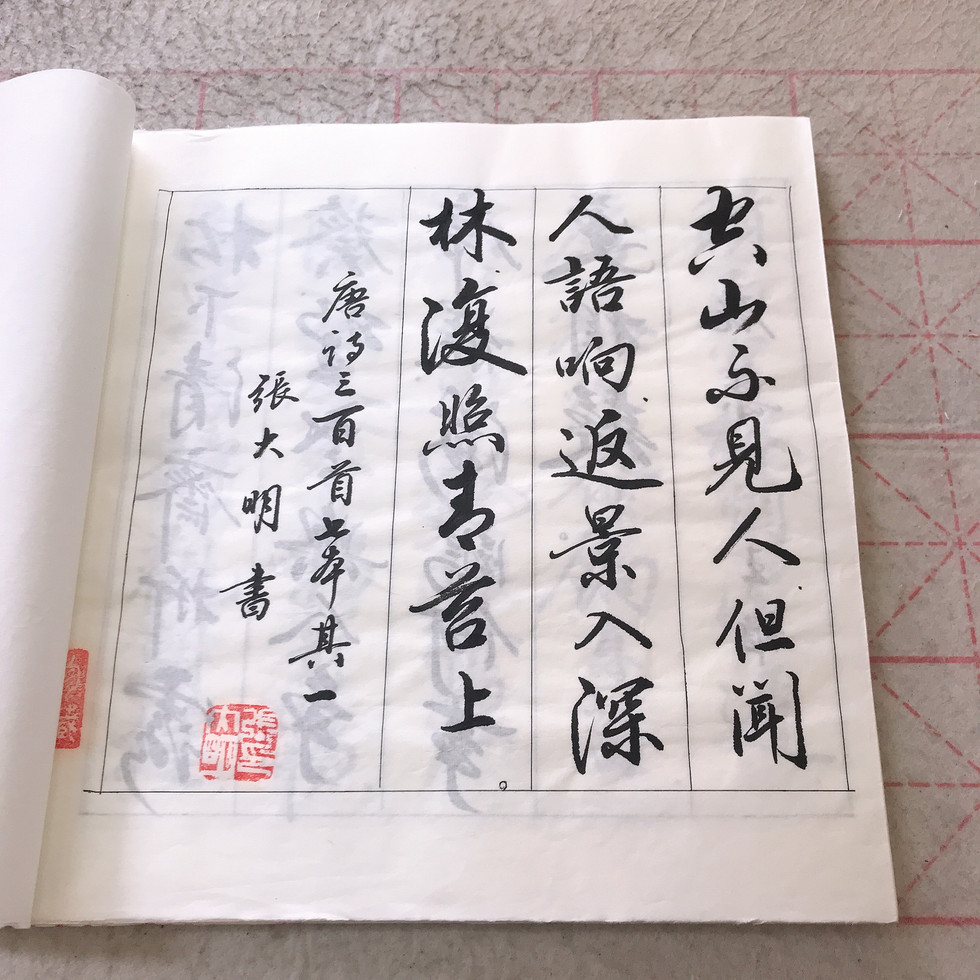 空山不見人但聞
人語响返景入深
林復照青苔上
唐詩三百首上本其一
張大明書